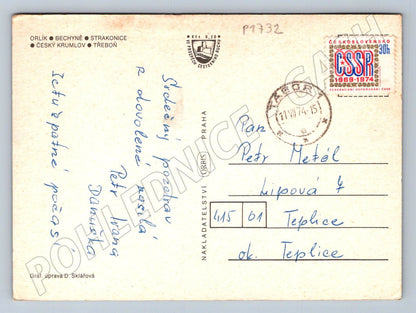 ORLÍK • BECHYNĚ • STRAKONICE
• ČESKÝ KRUMLOV • TŘEBOŇ
P1732
ČESKOSLOVENSKO
30h
ČSSR
1969-1974
TÁBOR 1
21.VII.74-15
Srdečný pozdrav
z dovolené zasílá
Petr Ivana
Danuška
Je tu špatné počasí
NAKLADATELSTVÍ ORBIS PRAHA
Pan
Petr Metál
Lipová 7
415 01 Teplice
ok. Teplice
Graf. úprava D. Sklářová
POHLEDNICE